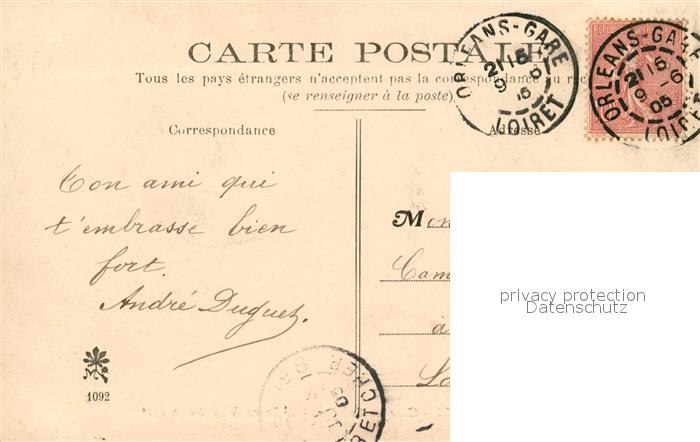 CARTE POSTALE
Tous les pays étrangers n'acceptent pas la correspondance au
(se renseigner à la poste)
ORLEANS-GARE
21 15
9 - 6
05
LOIRET
ORLEANS-GARE
21 15
9 - 6
05
LOIRET
Correspondance
Adresse
Ton ami qui
t'embrasse bien
fort.
André Duguet
Mon
Cam
à
privacy protection
Datenschutz
1092
ET CHER
05